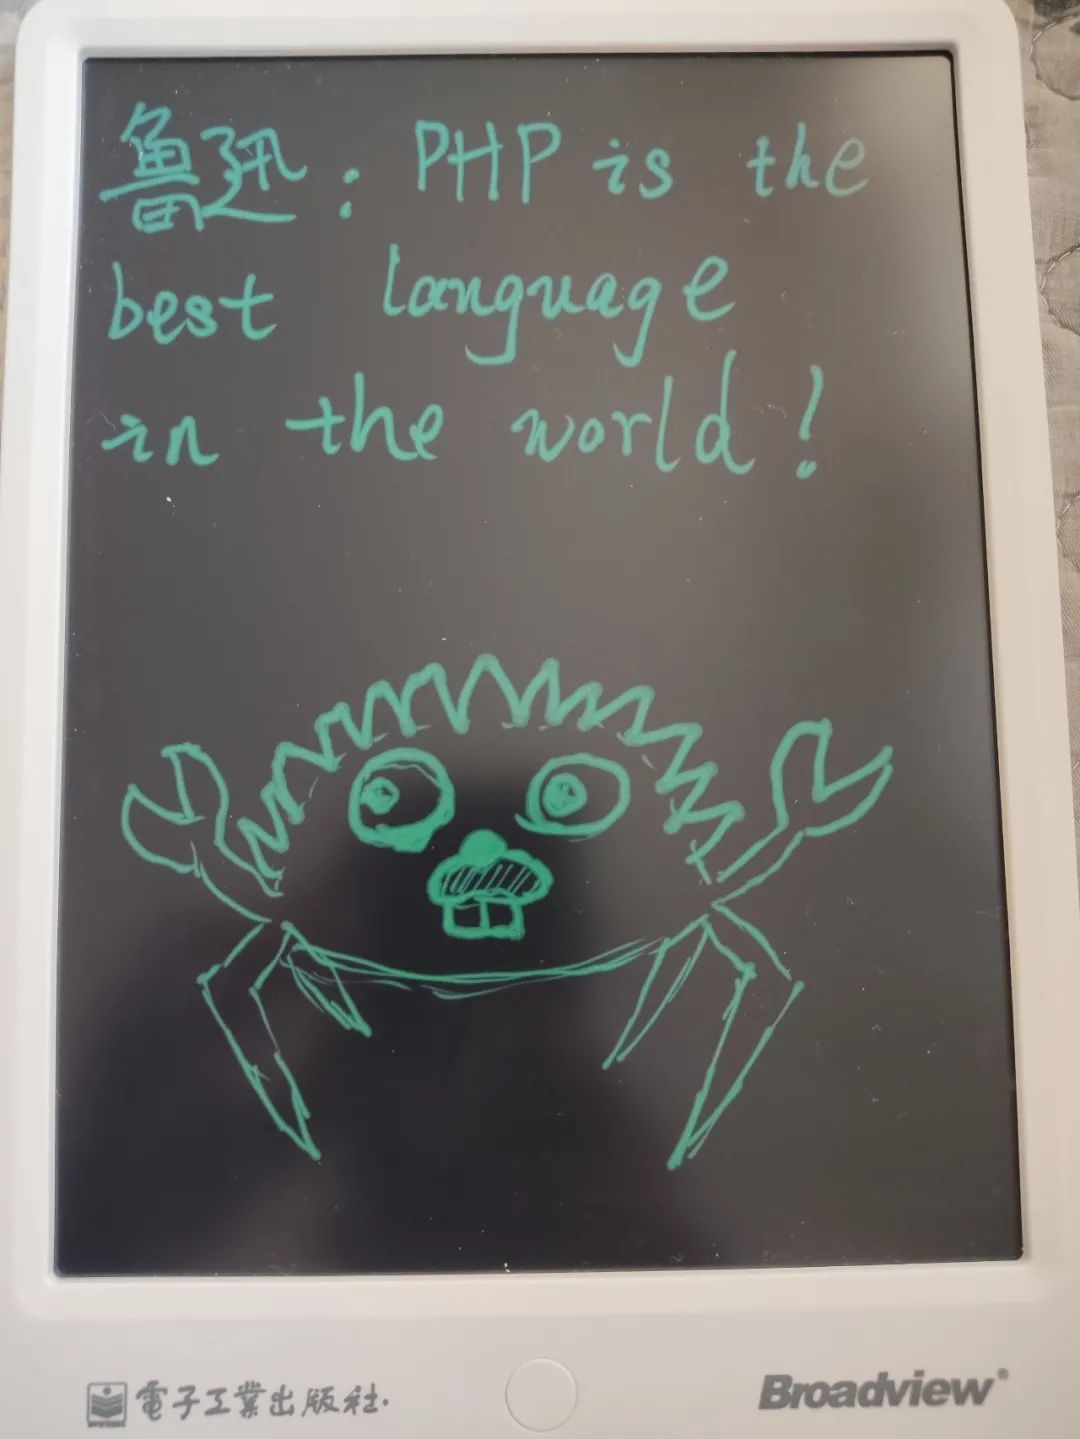 鲁迅：PHP is the
best language
in the world!
電子工業出版社.
Broadview®